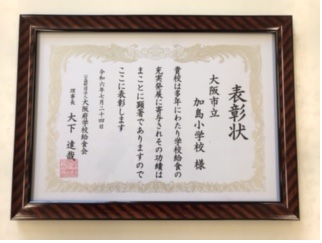 表彰状
大阪市立
加島小学校 様
貴校は多年にわたり学校給食の
充実発展に寄与されその功績は
まことに顕著でありますので
ここに表彰します
令和六年七月二十四日
公益財団法人大阪府学校給食会
理事長 大下達哉